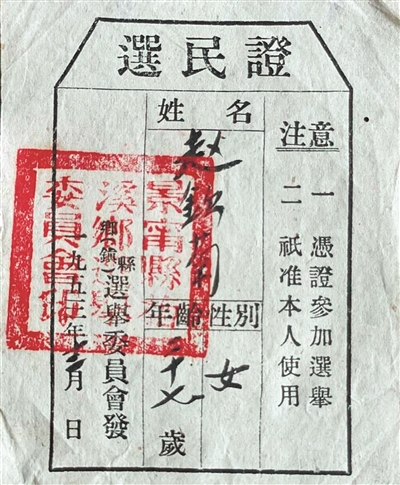 選民證
注意
一 憑證參加選舉
二 祇准本人使用
姓名
赵
性別
女
年齡
十七歲
縣
鄉(鎮)選舉委員會發
一九五 年 月 日
景甯縣
溪鄉選
委員會